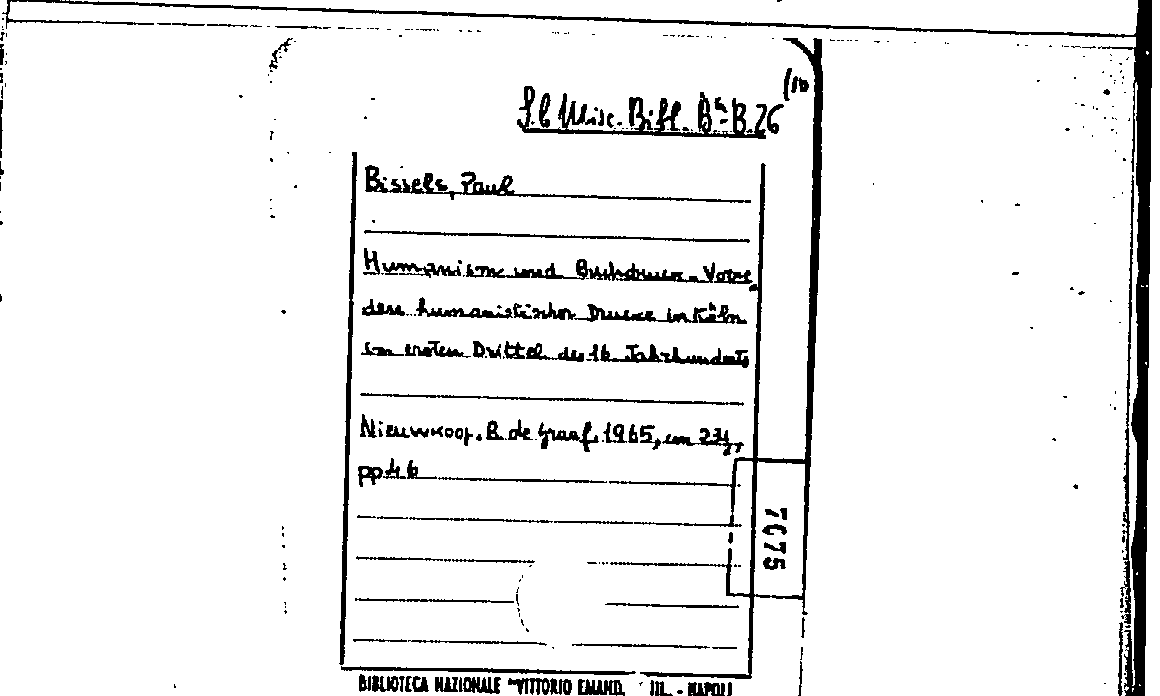 (10
S.C. Misc. Bibl. B⁵-B.26
Bissels, Paul
Humanisme und Buchdruck. Votre
dere humanistischer Drucke in Köln
im ersten Drittel des 16. Jahrhunderts
Nieuwkoop. B. de Graaf. 1965, cm 23½,
pp 46
7075
BIBLIOTECA NAZIONALE "VITTORIO EMAND. III. - NAPOLI